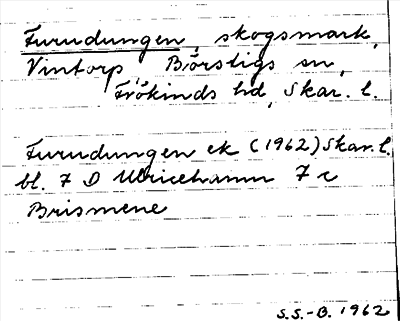 Furudungen, skogsmark,
Vintorp Börstigs sn,
Frökinds hd, Skar. l.
Furudungen ek (1962) Skar. l.
bl. 7 D Ulricehamn 7 c
Brismene
S.S.-B. 1962